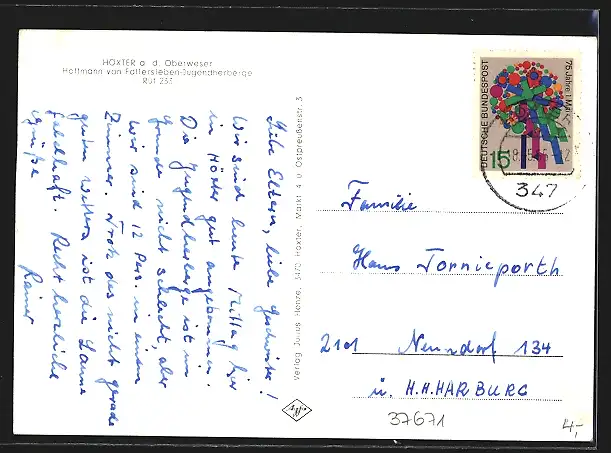 HÖXTER a. d. Oberweser
Hoffmann von Fallersleben-Jugendherberge
Ruf 233
Liebe Eltern, liebe Geschwister!
Wir sind heute Mittag hier
in Höxter gut angekommen.
Die Jugendherberge ist im
Grunde nicht schlecht, aber
wir sind 12 Pers. in einem
Zimmer. Trotz des nicht gerade
guten Wetters ist die Laune
fabelhaft. Recht herzliche
Grüße
Rainer
Verlag Julius Henze, 3470 Höxter, Markt 4 u. Ostpreußenstr. 3
DEUTSCHE BUNDESPOST
75 Jahre 1. Mai
15
347
Familie
Hans Tornieporth
2101 Neundorf 134
ü. H.H.HARBURG
37671
4,-